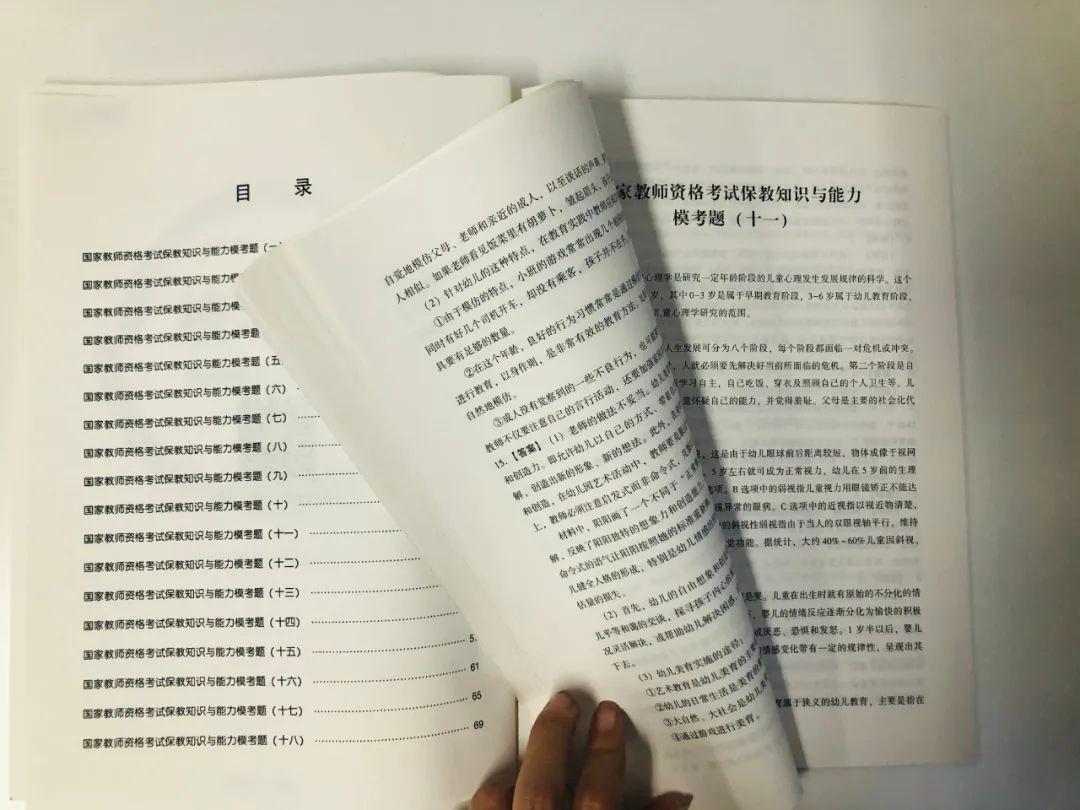 目 录
国家教师资格考试保教知识与能力模考题（一
国家教师资格考试保教知识与能力模
国家教师资格考试保教知识与能力模
国家教师资格考试保教知识与能力模考题
国家教师资格考试保教知识与能力模考题（五
国家教师资格考试保教知识与能力模考题（六）
国家教师资格考试保教知识与能力模考题（七）
国家教师资格考试保教知识与能力模考题（八）
国家教师资格考试保教知识与能力模考题（九）
国家教师资格考试保教知识与能力模考题（十）
国家教师资格考试保教知识与能力模考题（十一）
国家教师资格考试保教知识与能力模考题（十二）
国家教师资格考试保教知识与能力模考题（十三）
国家教师资格考试保教知识与能力模考题（十四）
国家教师资格考试保教知识与能力模考题（十五） 5
国家教师资格考试保教知识与能力模考题（十六） 61
国家教师资格考试保教知识与能力模考题（十七） 65
国家教师资格考试保教知识与能力模考题（十八） 69
自觉地模仿父母、老师和亲近的成人，以至谈话的声调
人相似。如果老师看见饭菜里有胡萝卜，皱起眉头，孩子
（2）针对幼儿的这种特点，在教育实践中教师应
①由于模仿的特点，小班的游戏常常出现几个相
同时有好几个司机开车，却没有乘客，孩子并不在乎
具要有足够的数量。
②在这个年龄，良好的行为习惯常常是通过模
进行教育，以身作则，是非常有效的教育方法。
自然地模仿。
③成人没有觉察到的一些不良行为，也可能
教师不仅要注意自己的言行活动，还要加强家
15.【答案】（1）老师的做法不妥当。幼儿
和创造力。即允许幼儿以自己的方式、带着
解，创造出新的形象、新的想法。此外，在
和创造，在幼儿园艺术活动中，教师要克服
上，教师必须注意启发式而非命令式，克
材料中，阳阳画了一个不同于“正常
解，反映了阳阳独特的想象力和创造能
命令式的语气让阳阳按照她的标准重新
儿健全人格的形成，特别是幼儿情感的
估量的损失。
（2）首先，幼儿的自由想象和创
儿平等和蔼的交谈，探寻孩子内心的
况灵活解决，或帮助幼儿解决困惑
下去。
（3）幼儿美育实施的途径：
①艺术教育是幼儿美育的主要
②幼儿的日常生活是美育的
③大自然、大社会是幼儿
④通过游戏进行美育。
家教师资格考试保教知识与能力
模考题（十一）
心理学是研究一定年龄阶段的儿童心理发生发展规律的科学。这个
岁，其中 0~3 岁是属于早期教育阶段，3~6 岁属于幼儿教育阶段，
儿童心理学研究的范围。
人生发展可分为八个阶段，每个阶段都面临一对危机或冲突。
，人就必须要先解决好当前所面临的危机。第二个阶段是自
学习自主，自己吃饭、穿衣及照顾自己的个人卫生等。儿
童怀疑自己的能力，并觉得羞耻。父母是主要的社会化代
，这是由于幼儿眼球前后距离较短，物体成像于视网
，5 岁左右就可成为正常视力，幼儿在 5 岁前的生理
选项。B 选项中的弱视指儿童视力用眼镜矫正不能达
现异常的眼病。C 选项中的近视指以视近物清楚，
的斜视性弱视指由于当人的双眼视轴平行，维持
觉功能。据统计，大约 40%~60%儿童因斜视，
是果。儿童在出生时就有原始的不分化的情
下，婴儿的情绪反应逐渐分化为愉快的积极
或厌恶、恐惧和发怒。1 岁半以后，婴儿
情感变化带有一定的规律性，呈现出其
育属于狭义的幼儿教育，主要是指在